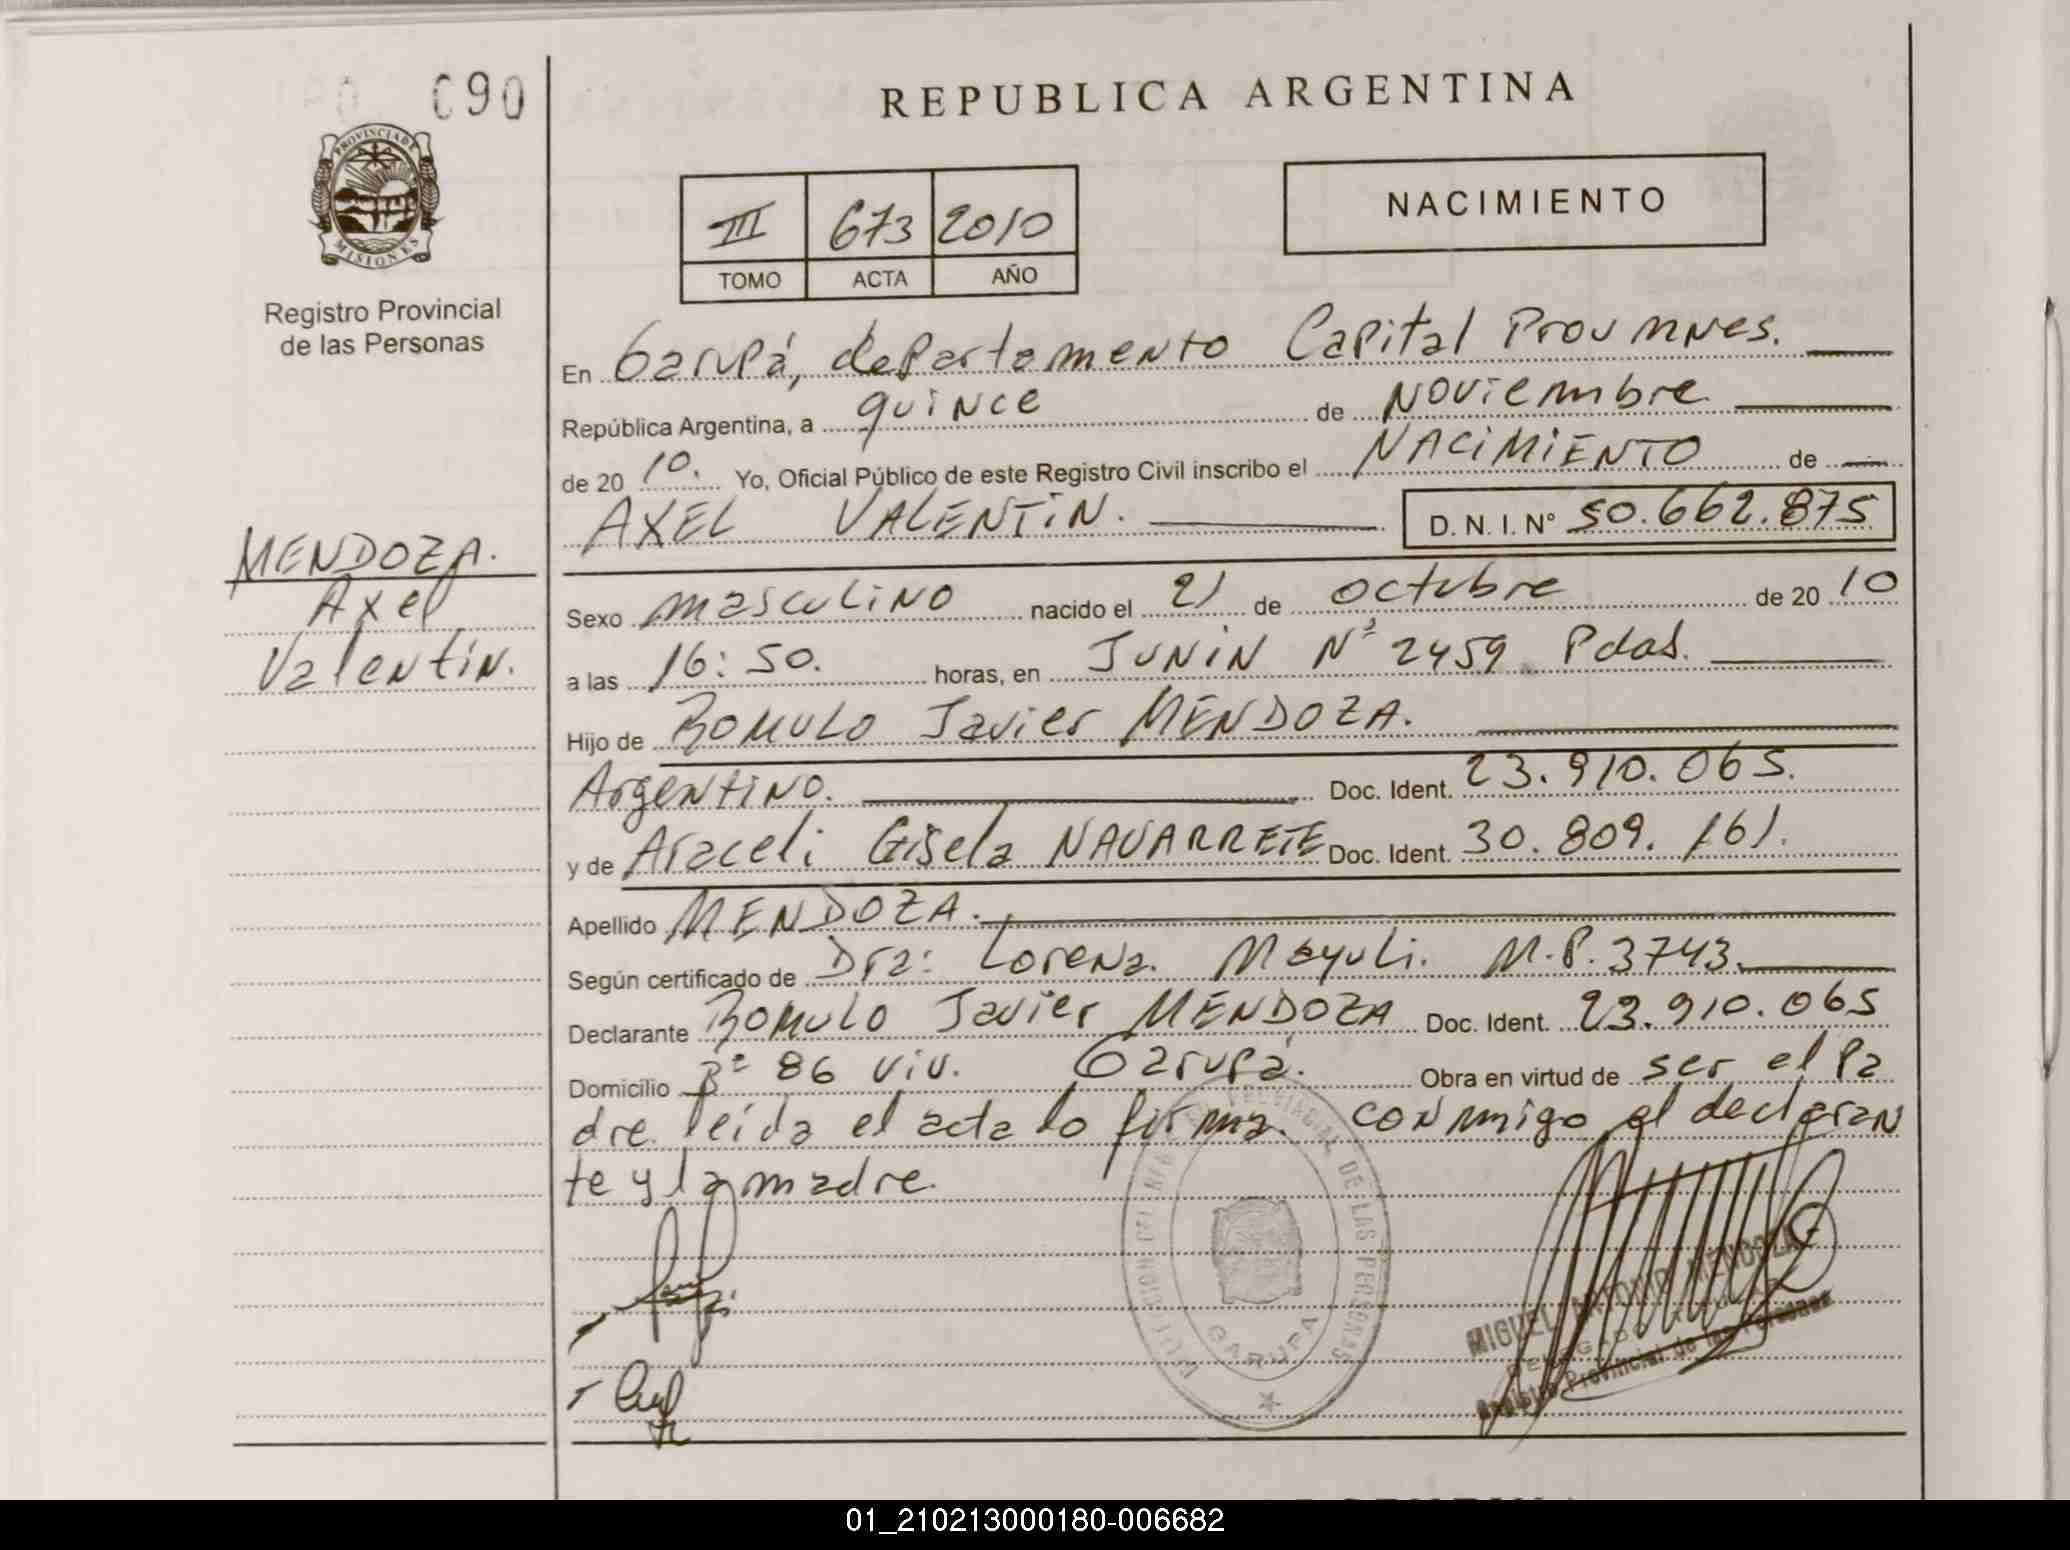 090
REPUBLICA ARGENTINA
PROVINCIA DE
MISIONES
Registro Provincial
de las Personas
III 673 2010
TOMO ACTA AÑO
NACIMIENTO
En Garupá, departamento Capital Prov Mnes.
República Argentina, a quince de Noviembre
de 20 10. Yo, Oficial Público de este Registro Civil inscribo el NACIMIENTO de
AXEL VALENTIN. D. N. I. N° 50.662.875
MENDOZA.
Axel
Valentin.
Sexo masculino nacido el 21 de octubre de 20 10
a las 16:50. horas, en JUNIN N° 2459 Pdas.
Hijo de ROMULO Javier MENDOZA.
Argentino. Doc. Ident. 23.910.065.
y de Araceli Gisela NAVARRETE Doc. Ident. 30.809.161.
Apellido MENDOZA.
Según certificado de Dra: Lorena Mayuli. M.P. 3743.
Declarante ROMULO Javier MENDOZA Doc. Ident. 23.910.065
Domicilio B° 86 viv. Garupá. Obra en virtud de ser el Pa
dre. leída el acta lo firma conmigo el declaran
te y la madre.
PROVINCIAL DE LAS PERSONAS
GARUPA
MIGUEL ANTONIO MENDOZA
Registro Provincial de las Personas
01_210213000180-006682